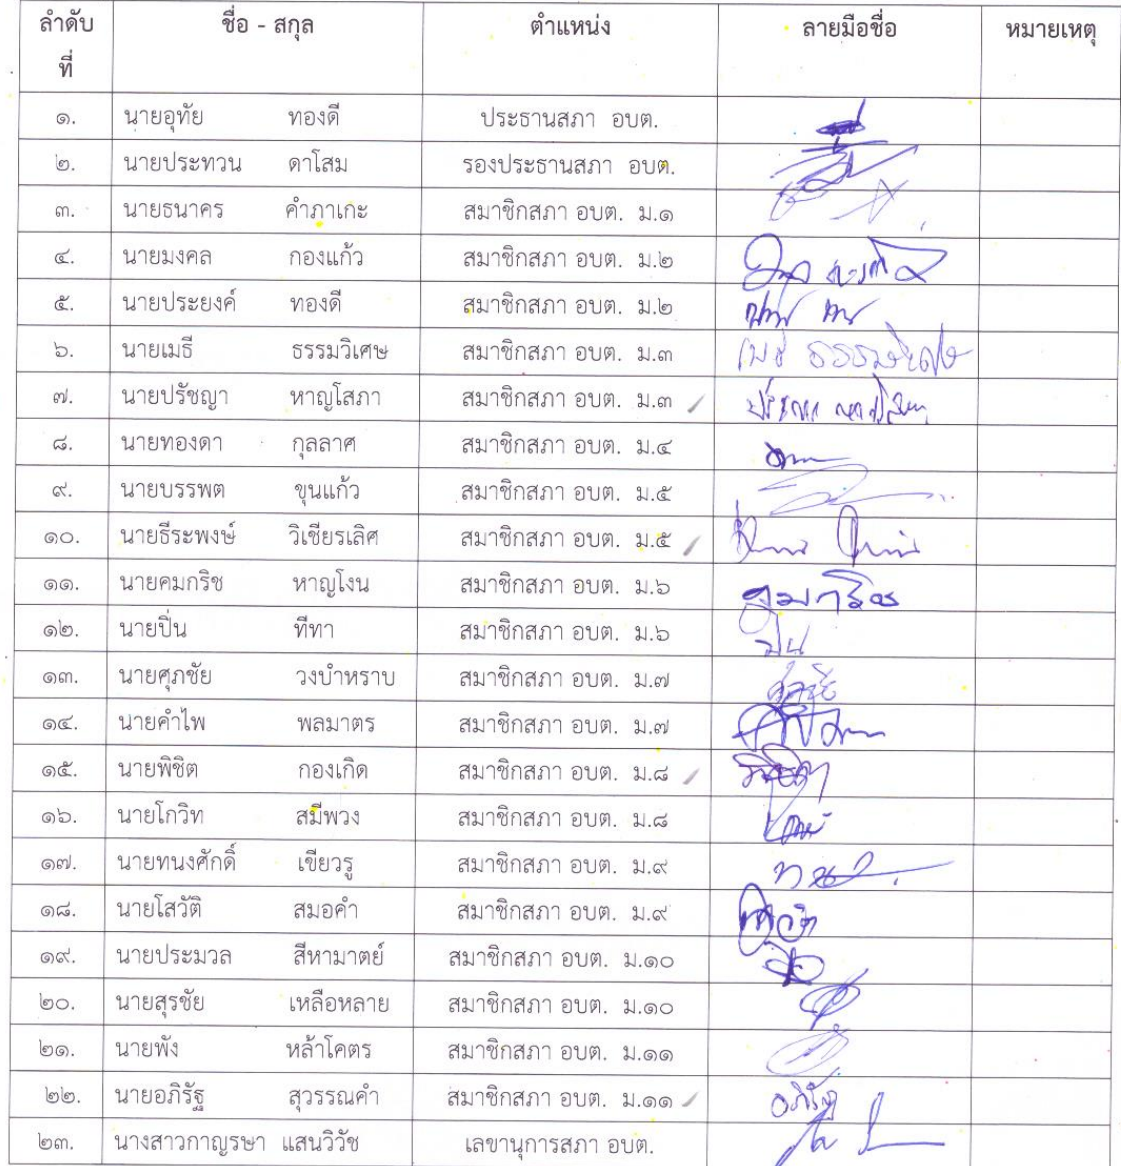 ลำดับที่ ชื่อ - สกุล ตำแหน่ง ลายมือชื่อ หมายเหตุ
๑. นายอุทัย ทองดี ประธานสภา อบต.
๒. นายประทวน ดาโสม รองประธานสภา อบต.
๓. นายธนาคร คำภาเกะ สมาชิกสภา อบต. ม.๑
๔. นายมงคล กองแก้ว สมาชิกสภา อบต. ม.๒
๕. นายประยงค์ ทองดี สมาชิกสภา อบต. ม.๒
๖. นายเมธี ธรรมวิเศษ สมาชิกสภา อบต. ม.๓ เมธี ธรรมวิเศษ
๗. นายปรัชญา หาญโสภา สมาชิกสภา อบต. ม.๓
๘. นายทองดา กุลลาศ สมาชิกสภา อบต. ม.๔
๙. นายบรรพต ขุนแก้ว สมาชิกสภา อบต. ม.๕
๑๐. นายธีระพงษ์ วิเชียรเลิศ สมาชิกสภา อบต. ม.๕
๑๑. นายคมกริช หาญโงน สมาชิกสภา อบต. ม.๖ คมกริช
๑๒. นายปิ่น ทีทา สมาชิกสภา อบต. ม.๖ ปิ่น
๑๓. นายศุภชัย วงบำหราบ สมาชิกสภา อบต. ม.๗ ศุภชัย
๑๔. นายคำไพ พลมาตร สมาชิกสภา อบต. ม.๗
๑๕. นายพิชิต กองเกิด สมาชิกสภา อบต. ม.๘
๑๖. นายโกวิท สมีพวง สมาชิกสภา อบต. ม.๘
๑๗. นายทนงศักดิ์ เขียวรู สมาชิกสภา อบต. ม.๙
๑๘. นายโสวัติ สมอคำ สมาชิกสภา อบต. ม.๙
๑๙. นายประมวล สีหามาตย์ สมาชิกสภา อบต. ม.๑๐
๒๐. นายสุรชัย เหลือหลาย สมาชิกสภา อบต. ม.๑๐
๒๑. นายพัง หล้าโคตร สมาชิกสภา อบต. ม.๑๑
๒๒. นายอภิรัฐ สุวรรณคำ สมาชิกสภา อบต. ม.๑๑ อภิรัฐ
๒๓. นางสาวกาญรษา แสนวิวัช เลขานุการสภา อบต.